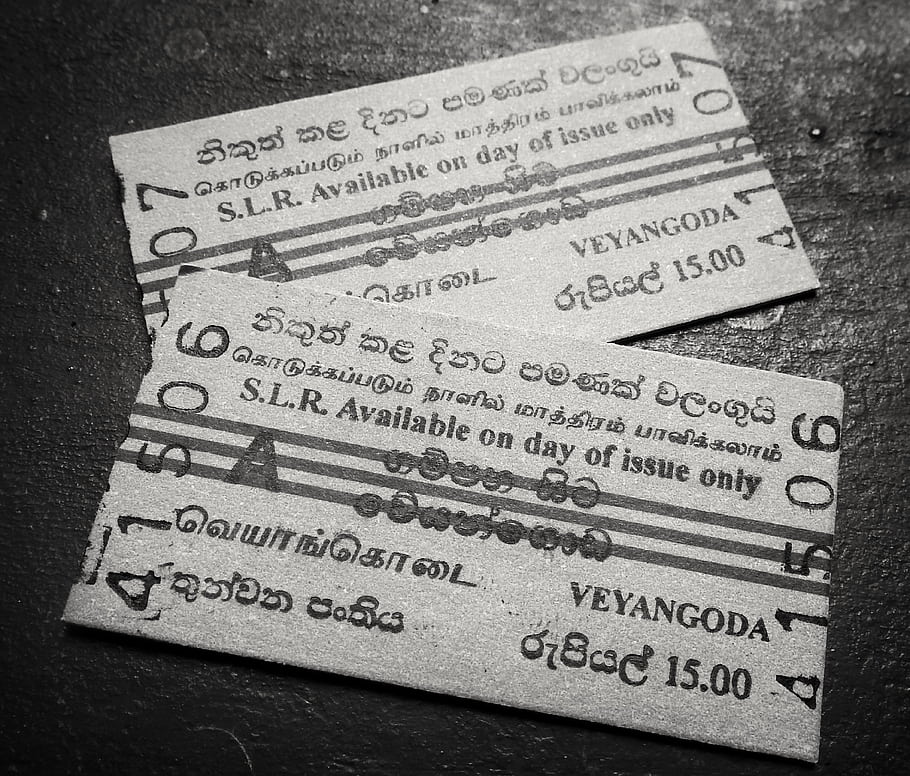 නිකුත් කළ දිනට පමණක් වලංගුයි
கொடுக்கப்படும் நாளில் மாத்திரம் பாவிக்கலாம்
S.L.R. Available on day of issue only
ගම්පහ සිට
A වේයන්ගොඩ
VEYANGODA
රුපියල් 15.00
07
4 1 5 0 7
නිකුත් කළ දිනට පමණක් වලංගුයි
கொடுக்கப்படும் நாளில் மாத்திரம் பாவிக்கலாம்
S.L.R. Available on day of issue only
ගම්පහ සිට
A වේයන්ගොඩ
வெயாங்கொடை
VEYANGODA
තුන්වන පංතිය
රුපියල් 15.00
4 1 5 0 6
4 1 5 0 6